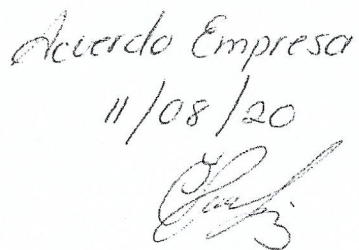 Acuerdo Empresa
11/08/20